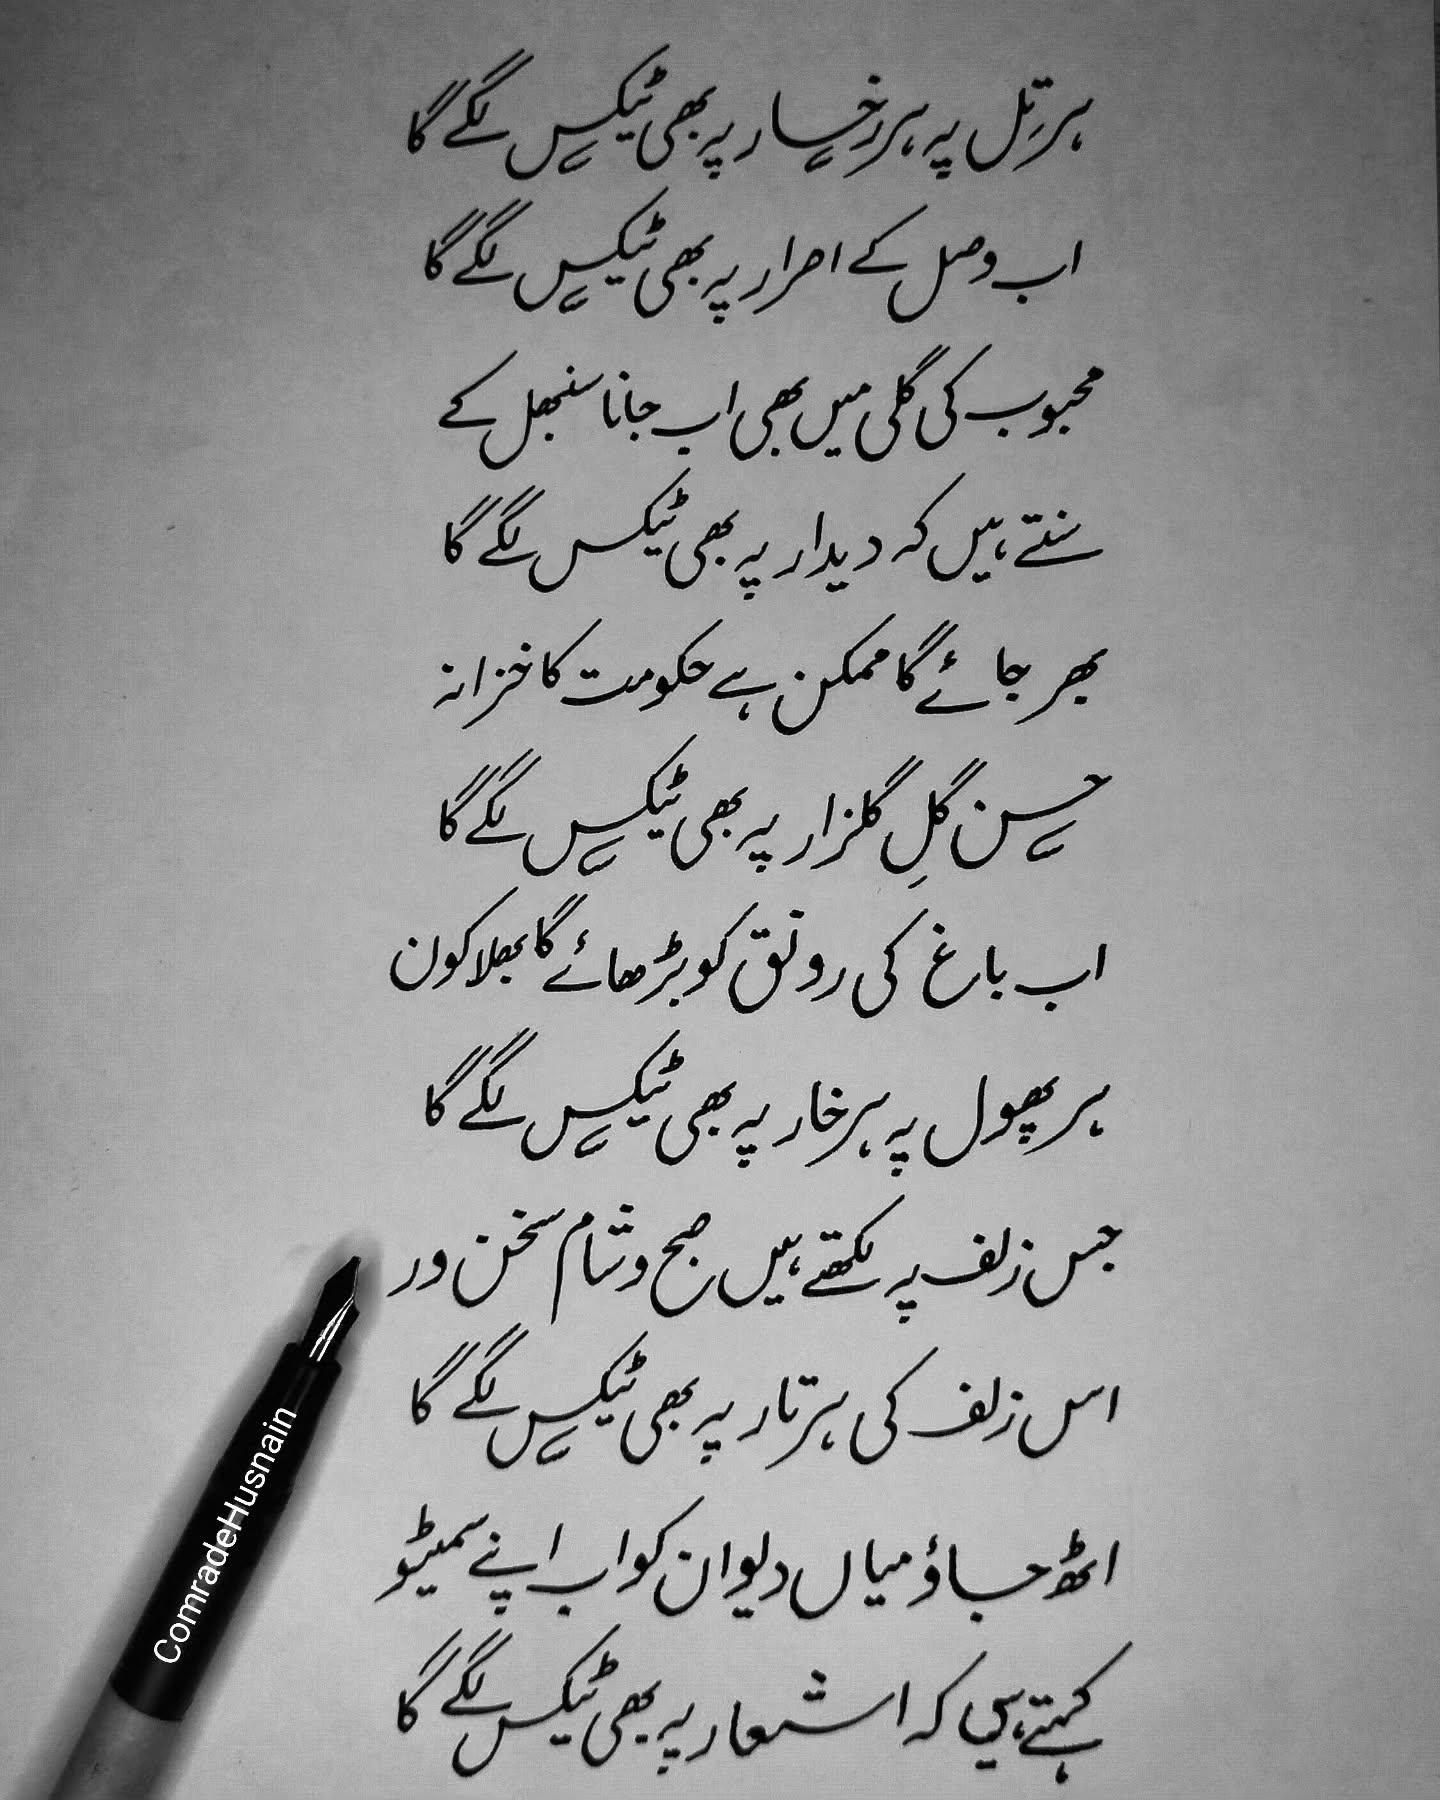 ہر تِل پہ ہر رخسار پہ بھی ٹیکس لگے گا
اب وصل کے اصرار پہ بھی ٹیکس لگے گا
محبوب کی گلی میں بھی اب جانا سنبھل کے
سنتے ہیں کہ دیدار پہ بھی ٹیکس لگے گا
بھر جائے گا ممکن ہے حکومت کا خزانہ
حسن گلِ گلزار پہ بھی ٹیکس لگے گا
اب باغ کی رونق کو بڑھائے گا بھلا کون
ہر پھول پہ ہر خار پہ بھی ٹیکس لگے گا
جس زلف پہ لکھتے ہیں صبح و شام سخن ور
اس زلف کی ہر تار پہ بھی ٹیکس لگے گا
اٹھ جاؤ میاں دیوان کو اب اپنے سمیٹو
کہتے ہیں کہ اشعار پہ بھی ٹیکس لگے گا
ComradeHusnain